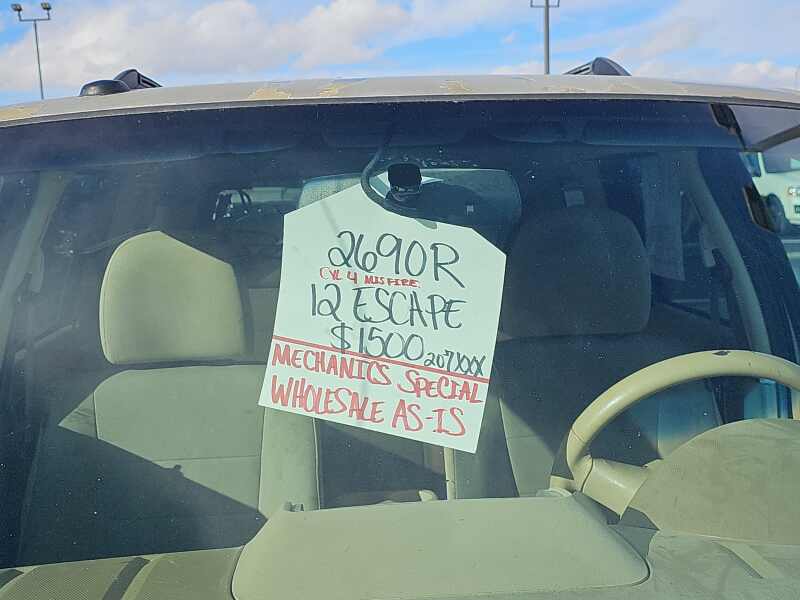 2690R
CYL 4 MISFIRE
12 ESCAPE
$1500 207XXX
MECHANICS SPECIAL
WHOLESALE AS-IS